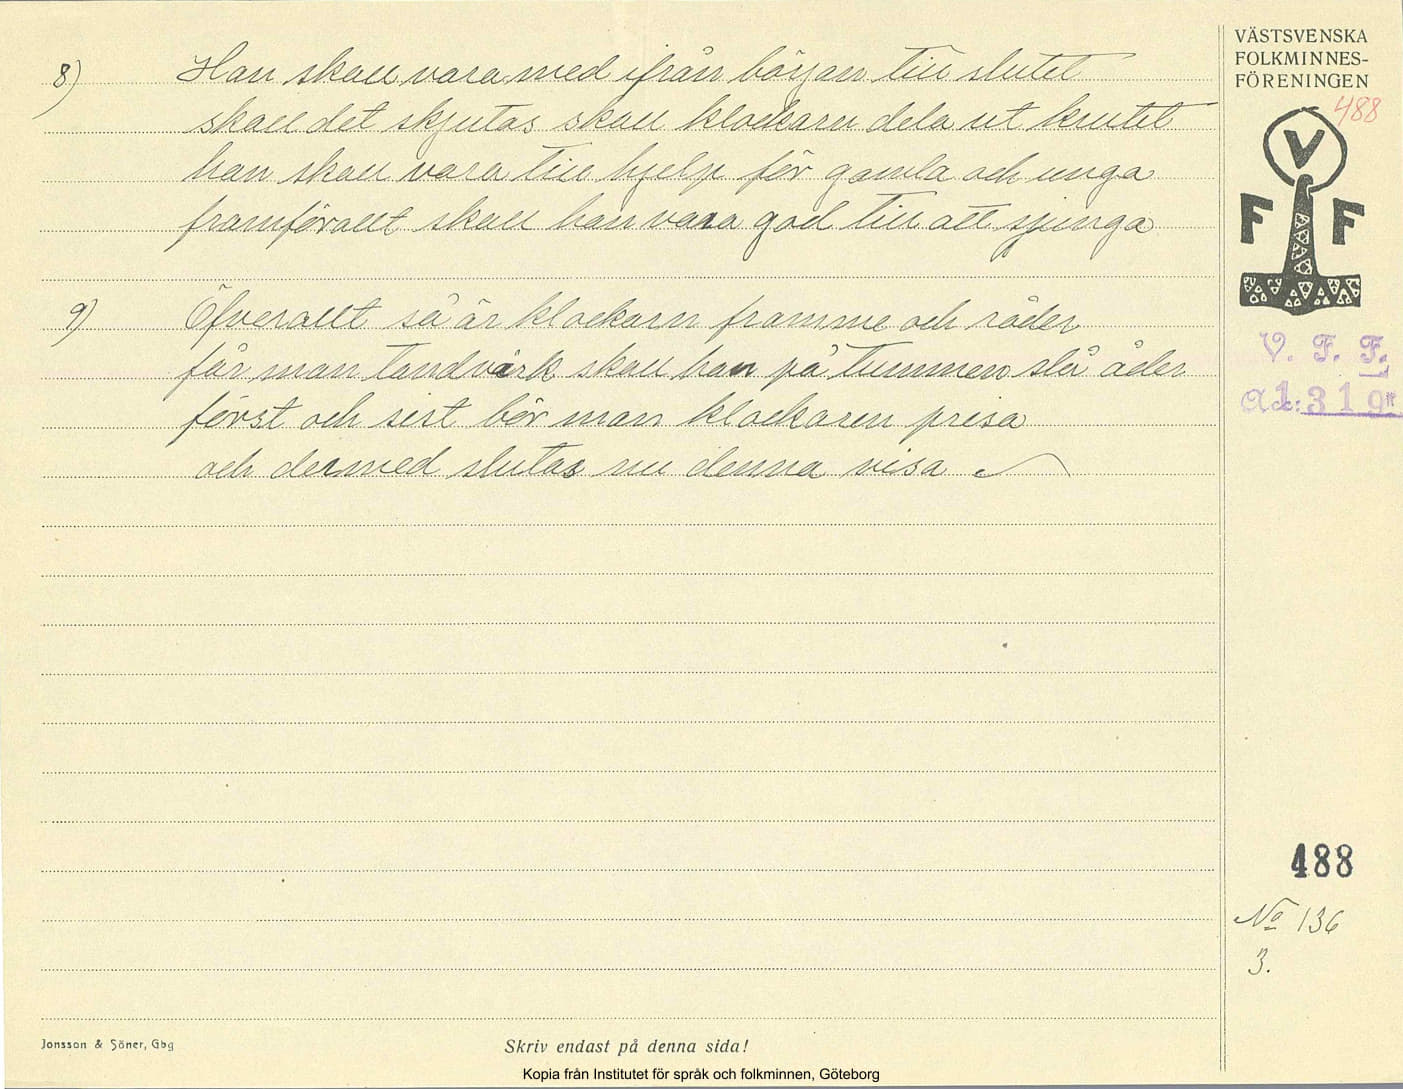 8) Han skall vara med ifrån början till slutet
skall det skjutas skall klockarn dela ut krutet
han skall vara till hjelp för gamla och unga
framförallt skall han vara god till att sjunga
9) Öfverallt så är klockarn framme och råder
får man tandvärk skall han på tummen slå åder
först och sist bör man klockaren prisa
och dermed slutas nu denna visa
VÄSTSVENSKA
FOLKMINNES-
FÖRENINGEN
488
V
F F
V. F. F.
488
No 136
3.
Jonsson & Söner, Gbg
Skriv endast på denna sida!
Kopia från Institutet för språk och folkminnen, Göteborg